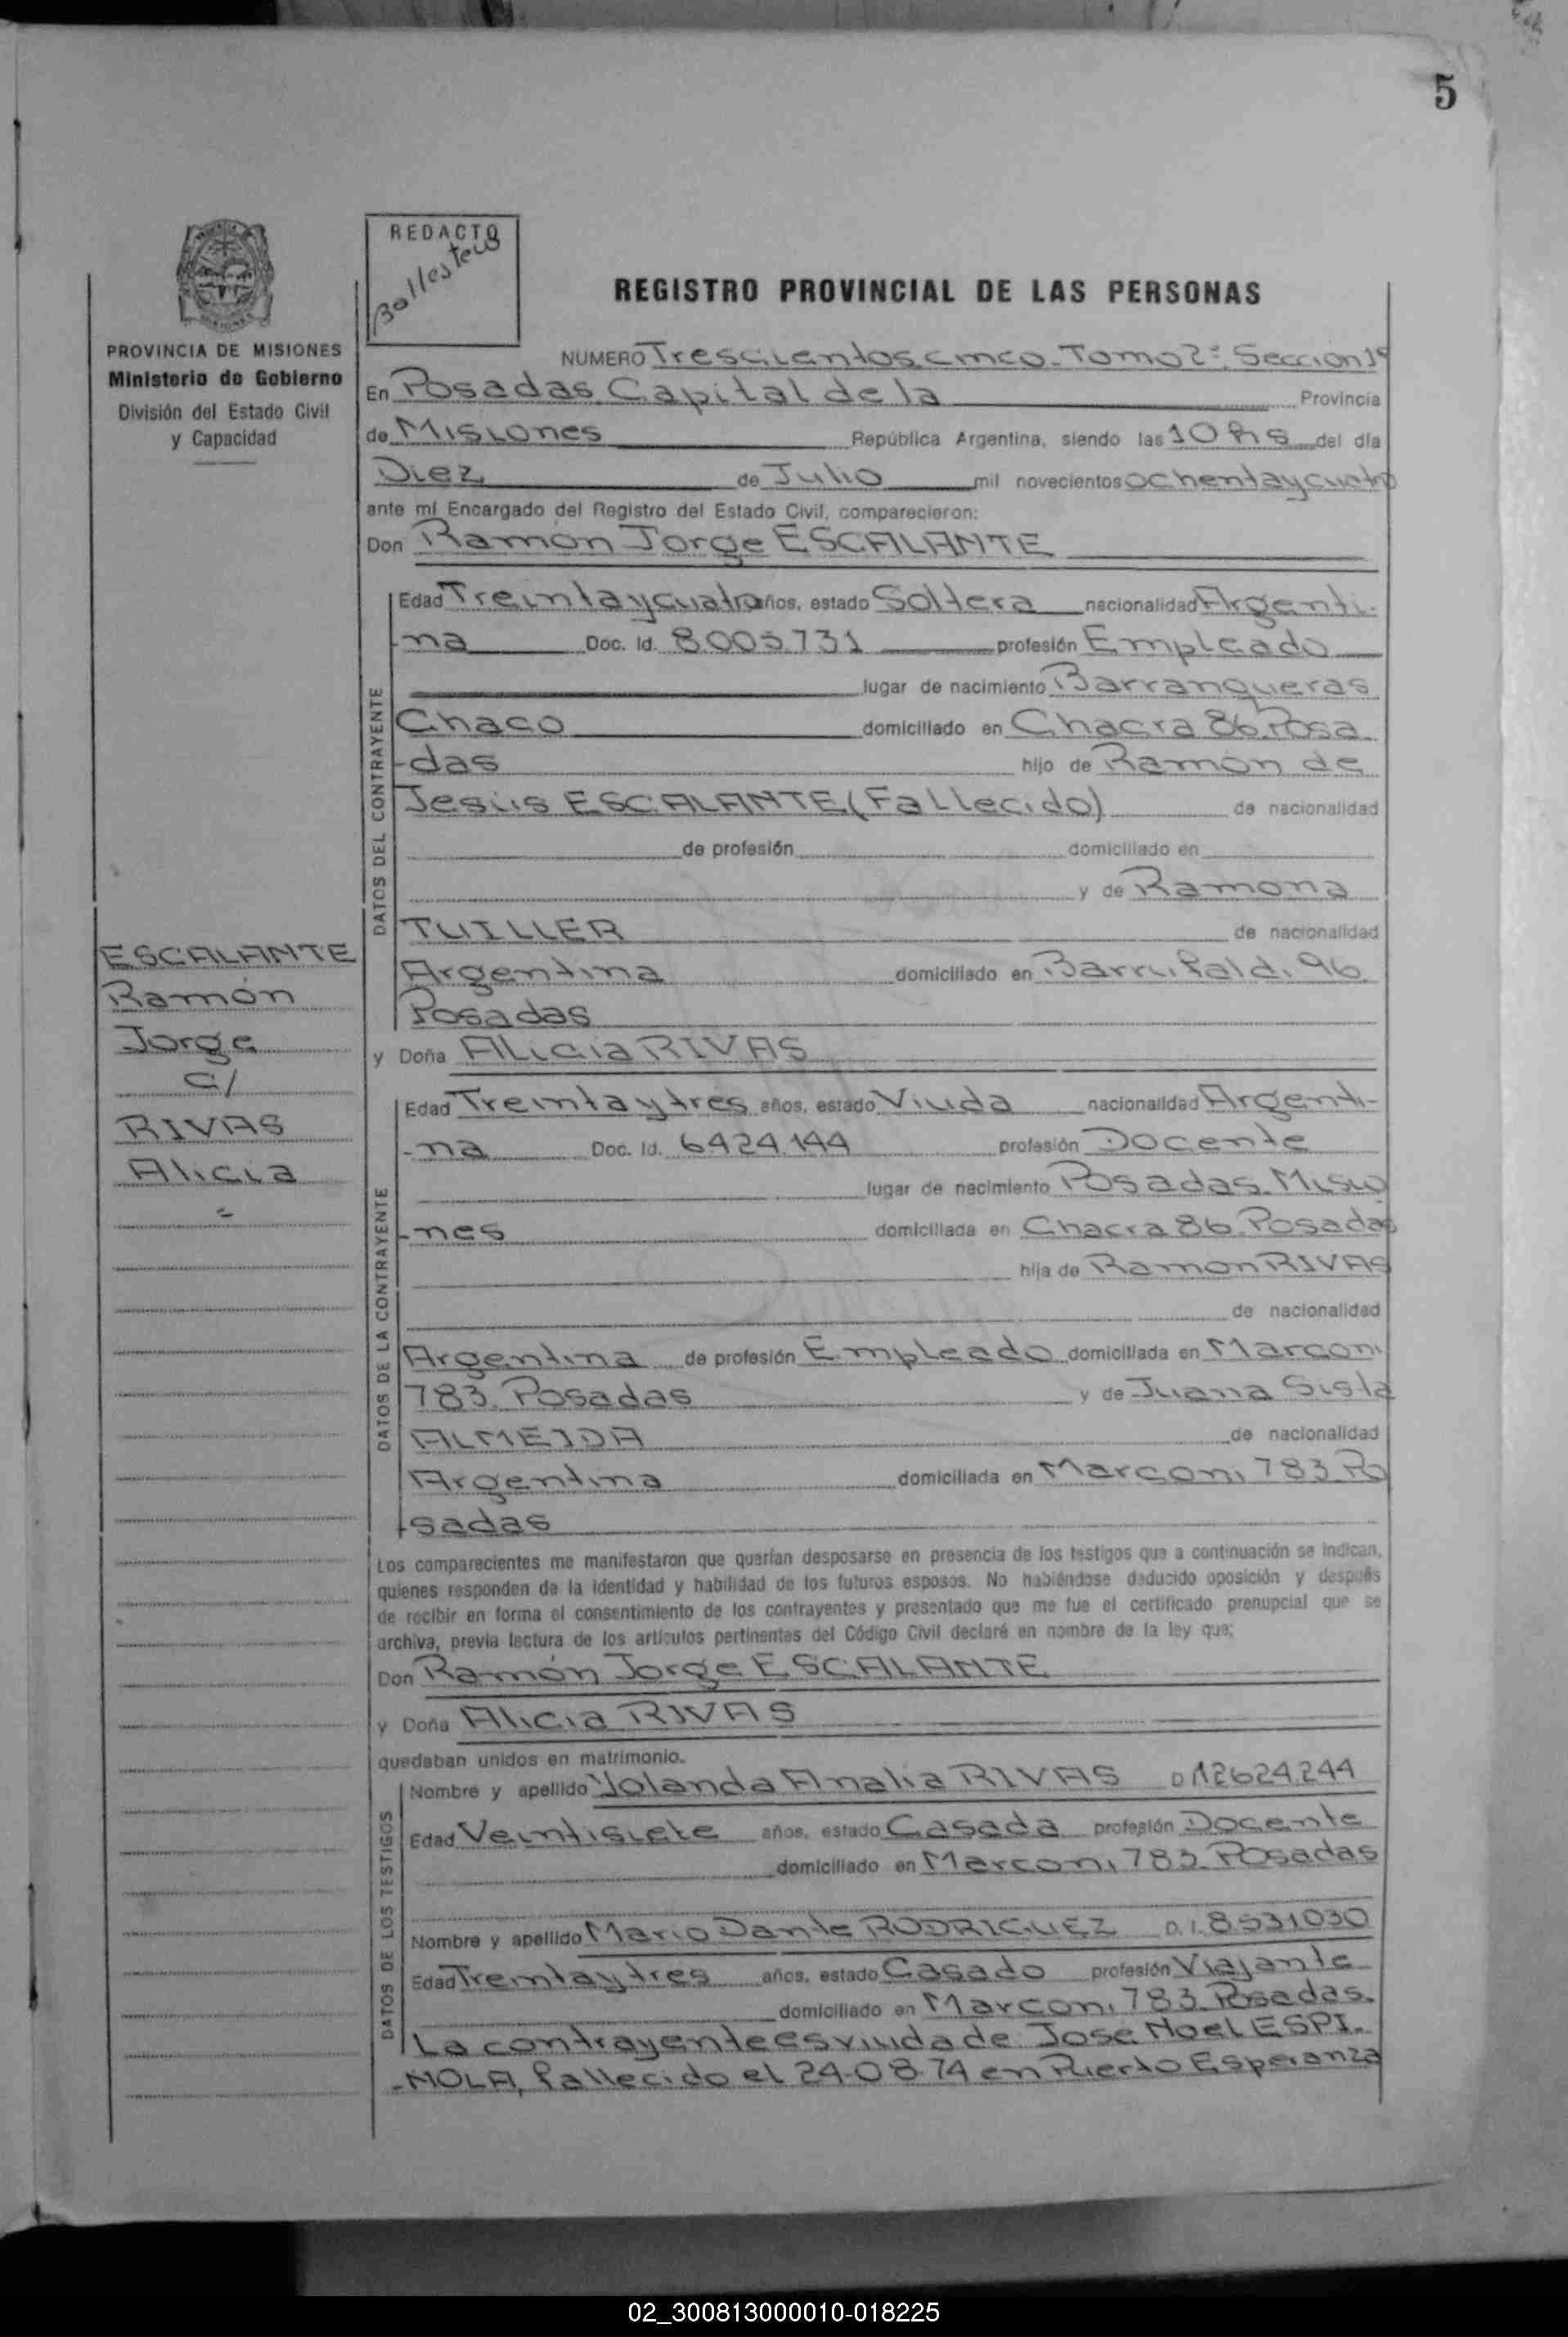 5
REDACTO
Ballesteros
REGISTRO PROVINCIAL DE LAS PERSONAS
PROVINCIA DE MISIONES
Ministerio de Gobierno
División del Estado Civil
y Capacidad
NUMERO Trescientos cinco. Tomo 2º. Seccion 1º
En Posadas Capital de la Provincia
de Misiones República Argentina, siendo las 10 hs del día
Diez de Julio mil novecientos ochentaycuatro
ante mí Encargado del Registro del Estado Civil, comparecieron:
Don Ramón Jorge ESCALANTE
DATOS DEL CONTRAYENTE
Edad Treintaycuatro años, estado Soltera nacionalidad Argenti-
-na Doc. Id. 8.005.731 profesión Empleado
lugar de nacimiento Barranqueras
Chaco domiciliado en Chacra 86. Posa
-das hijo de Ramón de
Jesús ESCALANTE (Fallecido) de nacionalidad
de profesión domiciliado en
y de Ramona
TUILLER de nacionalidad
Argentina domiciliado en Barrufaldi 96.
Posadas
ESCALANTE
Ramón
Jorge
c/
RIVAS
Alicia
=
y Doña Alicia RIVAS
DATOS DE LA CONTRAYENTE
Edad Treintaytres años, estado Viuda nacionalidad Argenti-
-na Doc. Id. 6.424.144 profesión Docente
lugar de nacimiento Posadas. Misio
-nes domiciliada en Chacra 86. Posadas
hija de Ramon RIVAS
de nacionalidad
Argentina de profesión Empleado domiciliada en Marconi
783. Posadas y de Juana Sista
ALMEIDA de nacionalidad
Argentina domiciliada en Marconi 783. Po
-sadas
Los comparecientes me manifestaron que querían desposarse en presencia de los testigos que a continuación se indican,
quienes responden de la identidad y habilidad de los futuros esposos. No habiéndose deducido oposición y después
de recibir en forma el consentimiento de los contrayentes y presentado que me fue el certificado prenupcial que se
archiva, previa lectura de los artículos pertinentes del Código Civil declaré en nombre de la ley que:
Don Ramón Jorge ESCALANTE
y Doña Alicia RIVAS
quedaban unidos en matrimonio.
DATOS DE LOS TESTIGOS
Nombre y apellido Yolanda Analia RIVAS D 12.624.244
Edad Veintisiete años, estado Casada profesión Docente
domiciliado en Marconi 783. Posadas
Nombre y apellido Mario Dante RODRIGUEZ D.I. 8.531.030
Edad Treintaytres años, estado Casado profesión Viajante
domiciliado en Marconi 783. Posadas.
La contrayente es viuda de Jose Noel ESPI-
-NOLA, fallecido el 24-08-74 en Puerto Esperanza
02_300813000010-018225